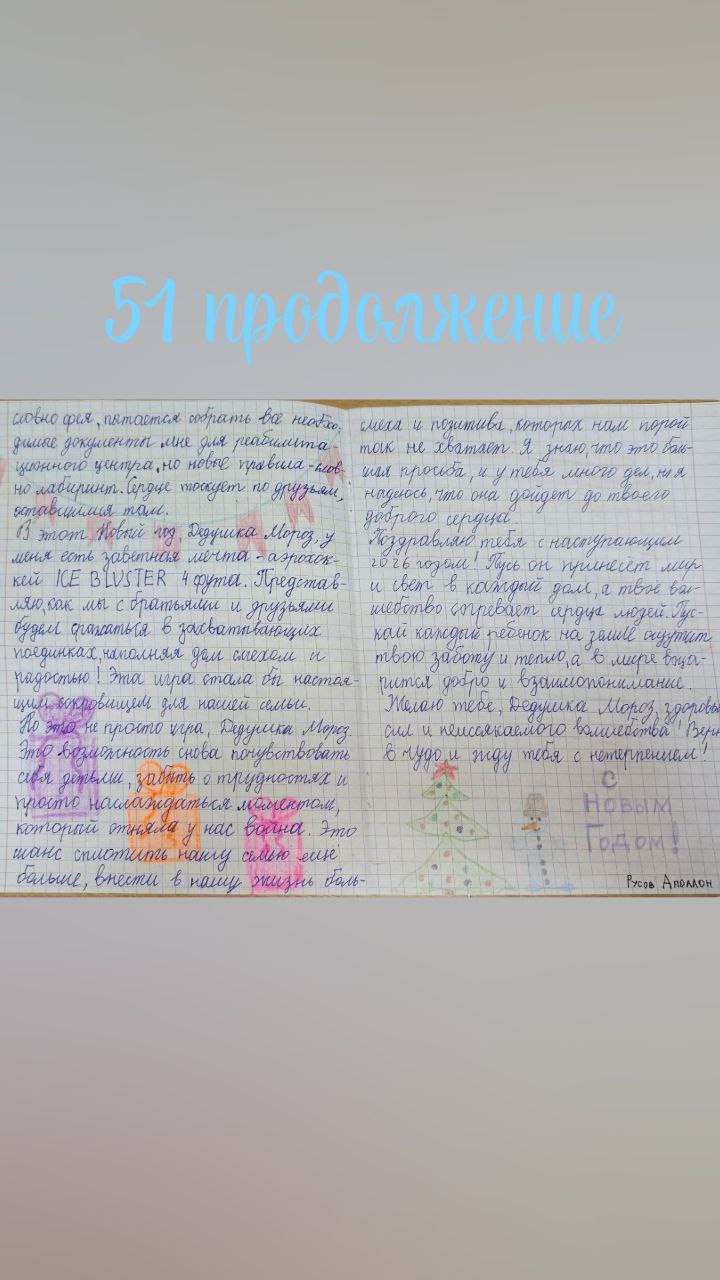 51 продолжение
словно фея, пытается собрать все необхо-
димые документы мне для реабилита-
ционного центра, но новые правила - слов-
но лабиринт. Сердце тоскует по друзьям,
оставшимся там.
В этот Новый год, Дедушка Мороз, у
меня есть заветная мечта - аэрохок-
кей ICE BLUSTER 4 фута. Представ-
ляю, как мы с братьями и друзьями
будем сражаться в захватывающих
поединках, наполняя дом смехом и
радостью! Эта игра стала бы настоя-
щим сокровищем для нашей семьи.
Но это не просто игра, Дедушка Мороз.
Это возможность снова почувствовать
себя детьми, забыть о трудностях и
просто наслаждаться моментом,
который отняла у нас война. Это
шанс сплотить нашу семью ещё
больше, внести в нашу жизнь боль-
смеха и позитива, которых нам порой
так не хватает. Я знаю, что это боль-
шая просьба, и у тебя много дел, но я
надеюсь, что она дойдет до твоего
доброго сердца.
Поздравляю тебя с наступающим
2026 годом! Пусь он принесёт мир
и свет в каждый дом, а твоё вол-
шебство согревает сердца людей. Пус-
кай каждый ребенок на земле ощутит
твою заботу и тепло, а в мире воца-
рится добро и взаимопонимание.
Желаю тебе, Дедушка Мороз, здоровья
сил и неиссякаемого волшебства! Верю
в чудо и жду тебя с нетерпением!
С
Новым
Годом!
Русов Аполлон